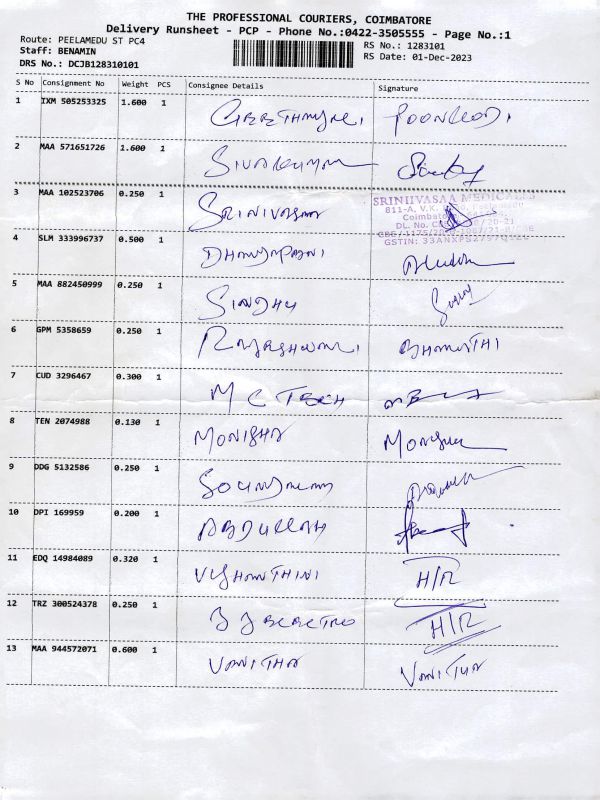 THE PROFESSIONAL COURIERS, COIMBATORE
Delivery Runsheet - PCP - Phone No.:0422-3505555 - Page No.:1
Route: PEELAMEDU ST PC4 RS No.: 1283101
Staff: BENAMIN RS Date: 01-Dec-2023
DRS No.: DCJB128310101
S No Consignment No Weight PCS Consignee Details Signature
1 IXM 505253325 1.600 1 GEETHANJALI POONKODI
2 MAA 571651726 1.600 1 SIVAKUMAR
3 MAA 102523706 0.250 1 SRINIVASAA
SRINIIVASAA MEDICALS
811-A, V.K.
Coimbatore
GSTIN: 33ANXPS2757Q1ZE
4 SLM 333996737 0.500 1
5 MAA 882450999 0.250 1 SINDHU
6 GPM 5358659 0.250 1 RAJESHWARI BHAMATHI
7 CUD 3296467 0.300 1 M C TECH
8 TEN 2074988 0.130 1 MONISHA Monisha
9 DDG 5132586 0.250 1
10 DPI 169959 0.200 1 ABDULLAH
11 EDQ 14984089 0.320 1 VYSHANTHINI H/R
12 TRZ 300524378 0.250 1 H/R
13 MAA 944572071 0.600 1 VANITHA VANITHA